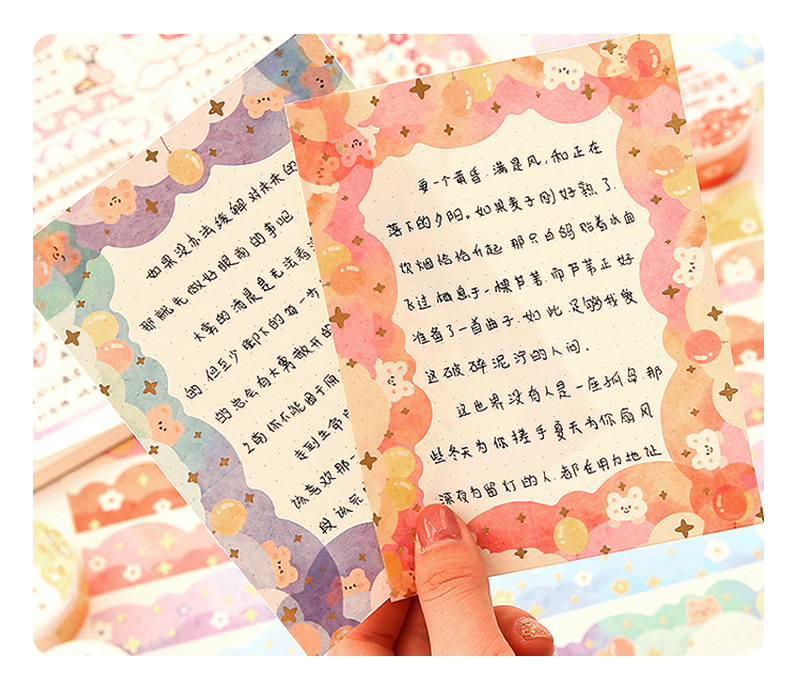 如果没办法缓解对未来的
那就先做好眼前的事吧
大雾的清晨是无法看清
的.但至少脚下的每一步
的.总会向大雾敞开的
之前你不能困于雨
走到生命的
该喜欢那一
段.该完
要一个黄昏.满是风,和正在
落下的夕阳。如果麦子刚好熟了.
炊烟恰恰升起 那只白鸽贴着水面
飞过.栖息于一棵芦苇.而芦苇正好
准备了一首曲子.如此.足够我爱
这破碎泥泞的人间.
这世界没有人是一座孤岛 那
些冬天为你搓手夏天为你扇风
深夜为留灯的人.都在用力地址